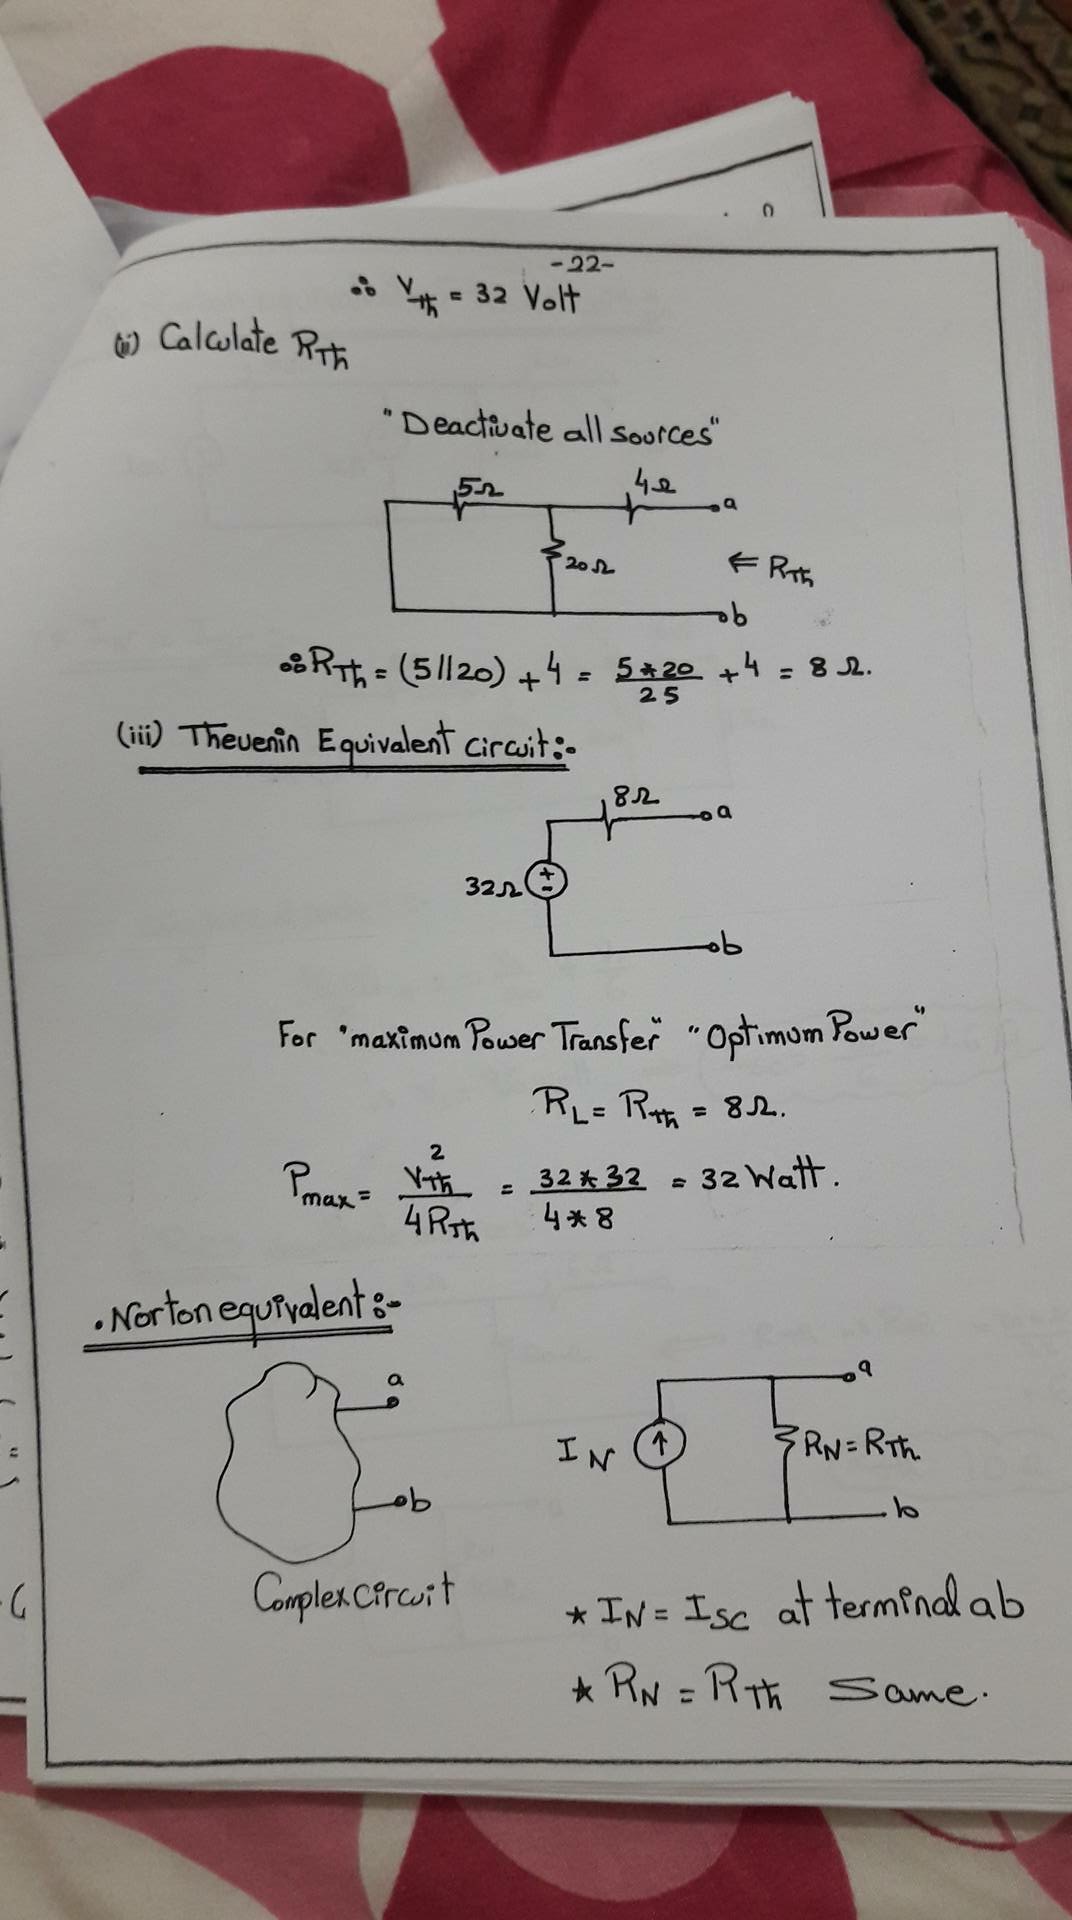 -22-
∴ VTh = 32 Volt
(ii) Calculate RTh
"Deactivate all sources"
5Ω 4Ω a
20Ω ⇐ RTh
b
∴ RTh = (5//20) + 4 = 5*20/25 + 4 = 8 Ω.
(iii) Thevenin Equivalent Circuit:-
8Ω a
32Ω + -
b
For "maximum Power Transfer" "Optimum Power"
RL = RTh = 8Ω.
Pmax = VTh²/4RTh = 32*32/4*8 = 32 Watt.
. Norton equivalent:-
a a
IN ↑ RN = RTh.
b b
Complex circuit
* IN = ISC at terminal ab
* RN = RTh Same.